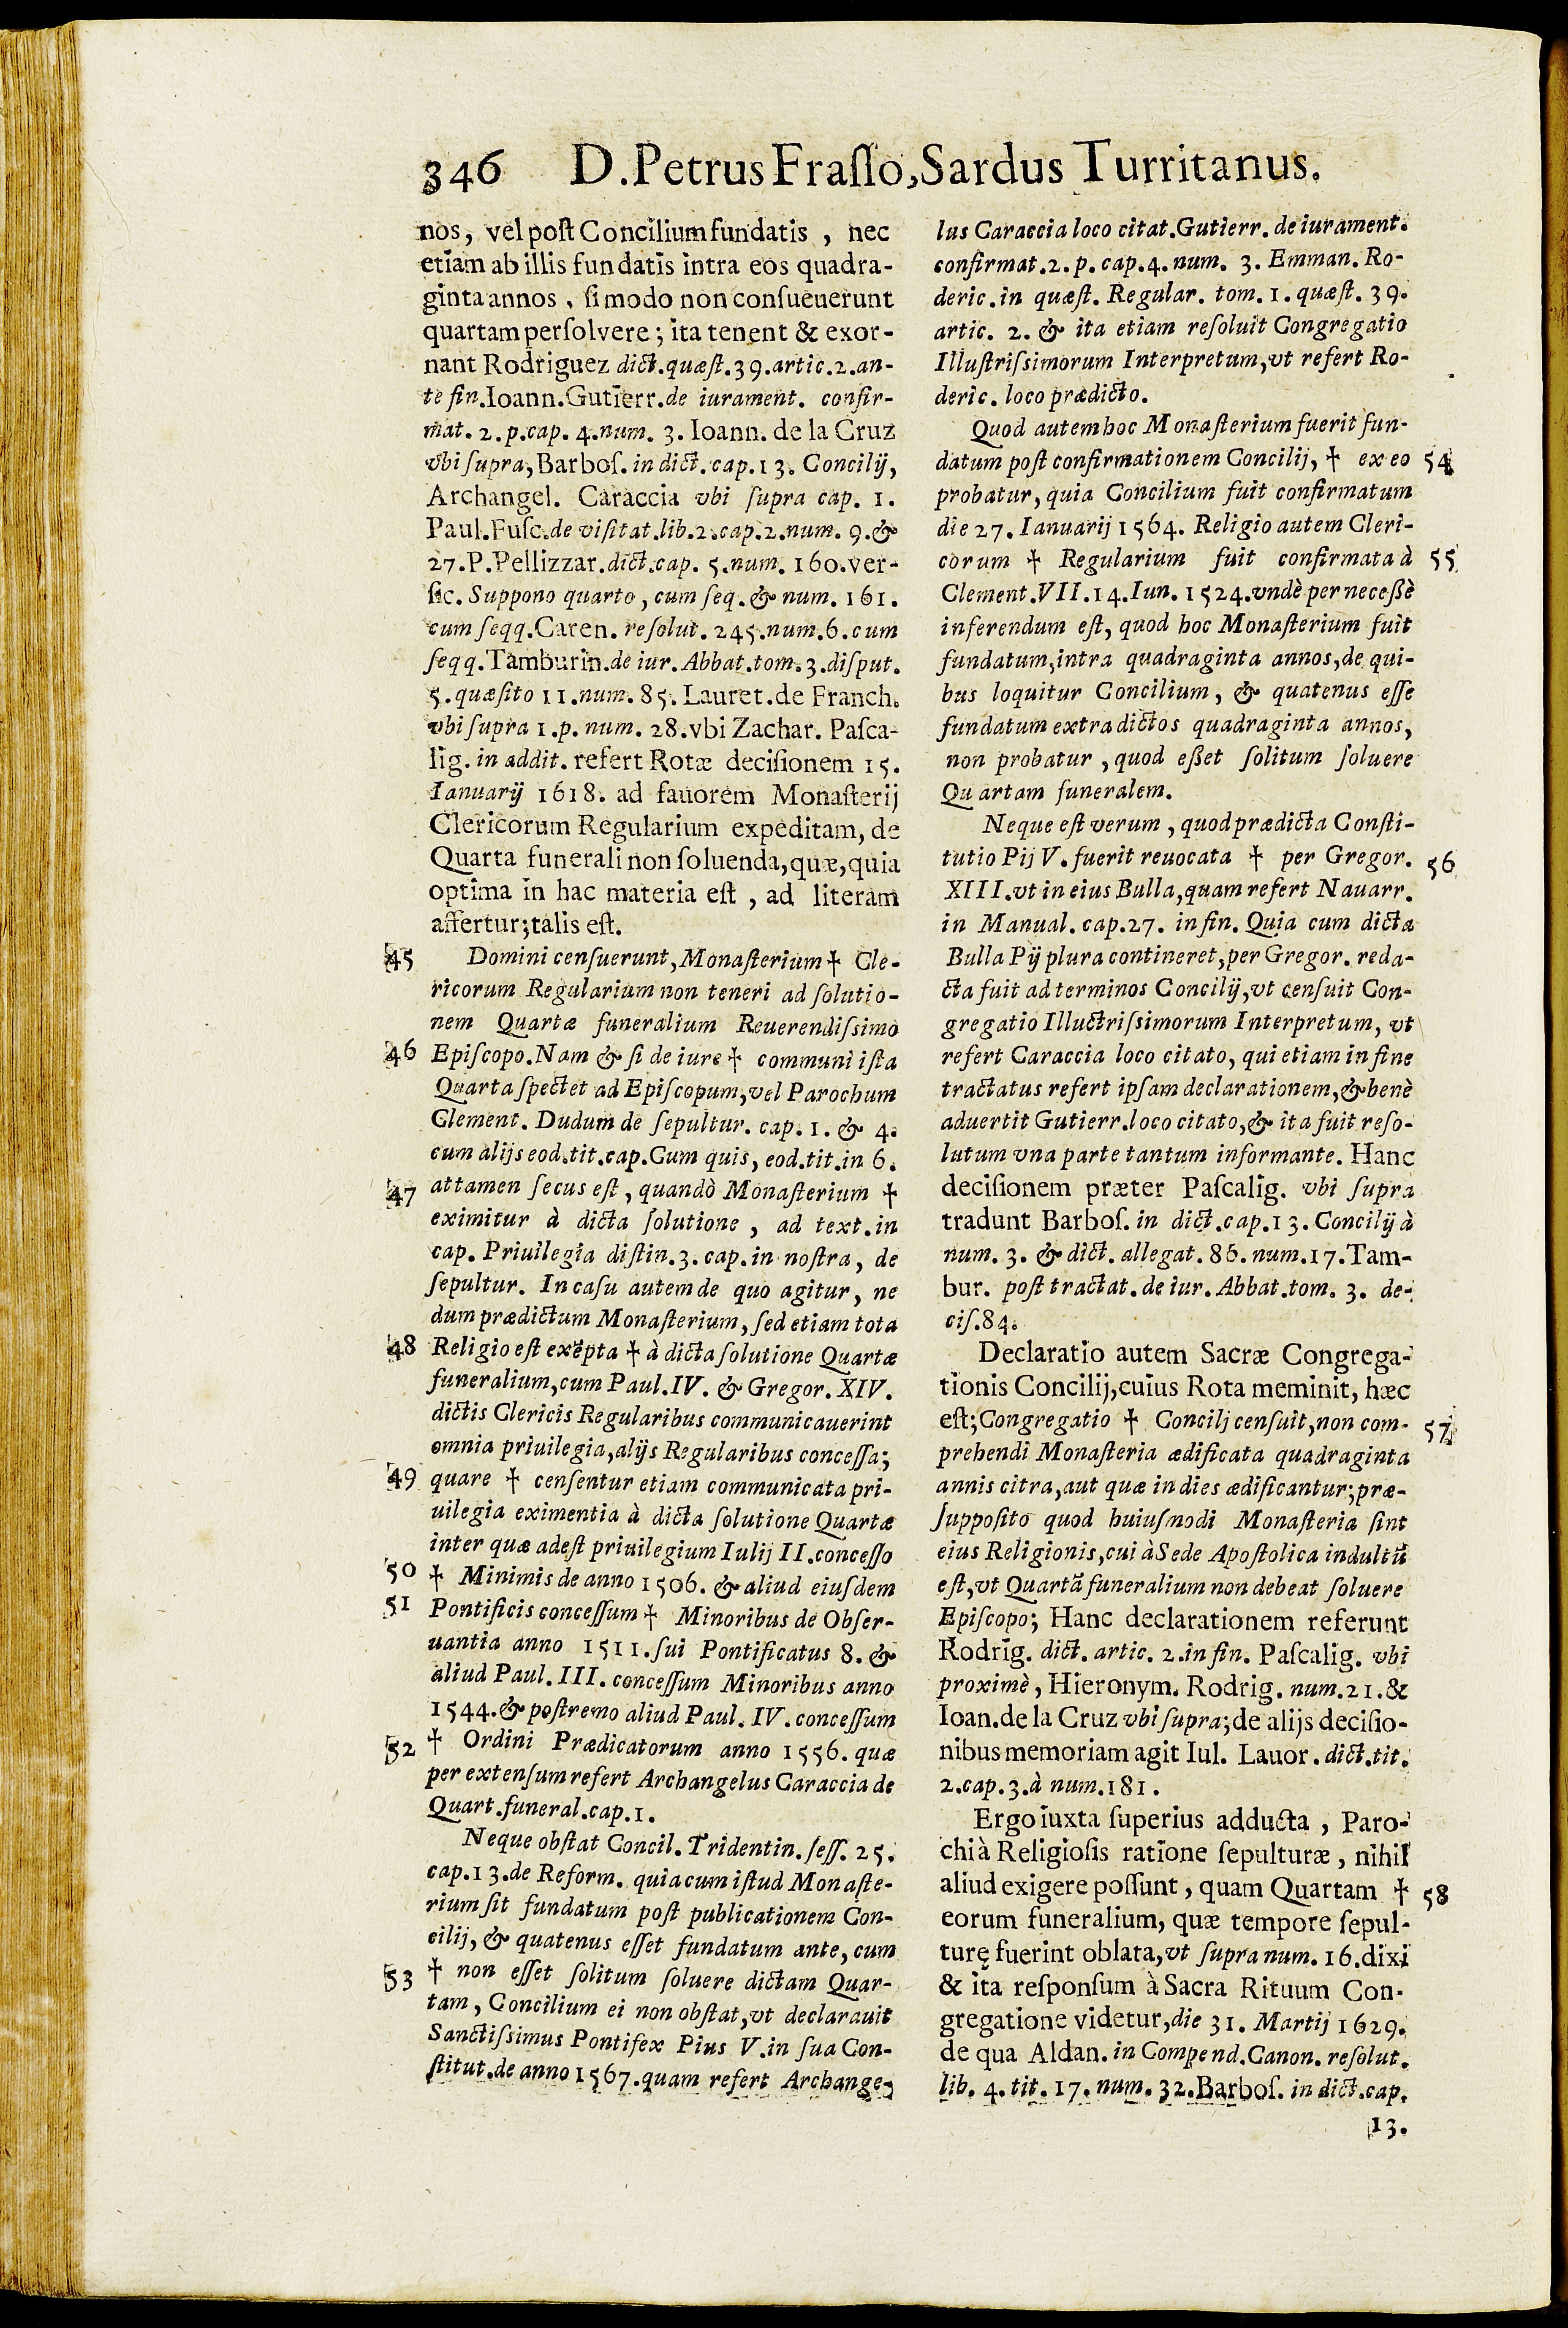 346 D. Petrus Fraſſo, Sardus Turritanus.
nos, vel poſt Concilium fundatis, nec
etiam ab illis fundatis intra eos quadra-
ginta annos, ſi modo non conſueuerunt
quartam perſolvere; ita tenent & exor-
nant Rodriguez dict. quæſt. 39. artic. 2. an-
te fin. Ioann. Gutierr. de iurament. confir-
mat. 2. p. cap. 4. num. 3. Ioann. de la Cruz
vbi ſupra, Barboſ. in dict. cap. 13. Concilij,
Archangel. Caraccia vbi ſupra cap. 1.
Paul. Fuſc. de viſitat. lib. 2. cap. 2. num. 9. &
27. P. Pellizzar. dict. cap. 5. num. 160. ver-
ſic. Suppono quarto, cum ſeq. & num. 161.
cum ſeqq. Caren. reſolut. 245. num. 6. cum
ſeqq. Tamburin. de iur. Abbat. tom. 3. diſput.
5. quæſito 11. num. 85. Lauret. de Franch.
vbi ſupra 1. p. num. 28. vbi Zachar. Paſca-
lig. in addit. refert Rotæ deciſionem 15.
Ianuarij 1618. ad fauorem Monaſterij
Clericorum Regularium expeditam, de
Quarta funerali non ſoluenda, quæ, quia
optima in hac materia eſt, ad literam
affertur; talis eſt.
45 Domini cenſuerunt, Monaſterium † Cle-
ricorum Regularium non teneri ad ſolutio-
nem Quartæ funeralium Reuerendiſsimo
46 Epiſcopo. Nam & ſi de iure † communi iſta
Quarta ſpectet ad Epiſcopum, vel Parochum
Clement. Dudum de ſepultur. cap. 1. & 4.
cum alijs eod. tit. cap. Cum quis, eod. tit. in 6.
47 attamen ſecus eſt, quandò Monaſterium †
eximitur à dicta ſolutione, ad text. in
cap. Priuilegia diſtin. 3. cap. in noſtra, de
ſepultur. In caſu autem de quo agitur, ne
dum prædictum Monaſterium, ſed etiam tota
48 Religio eſt exẽpta † à dicta ſolutione Quartæ
funeralium, cum Paul. IV. & Gregor. XIV.
dictis Clericis Regularibus communicauerint
omnia priuilegia, alijs Regularibus conceſſa;
49 quare † cenſentur etiam communicata pri-
uilegia eximentia à dicta ſolutione Quartæ
inter quæ adeſt priuilegium Iulij II. conceſſo
50 † Minimis de anno 1506. & aliud eiuſdem
51 Pontificis conceſſum † Minoribus de Obſer-
uantia anno 1511. ſui Pontificatus 8. &
aliud Paul. III. conceſſum Minoribus anno
1544. & poſtremo aliud Paul. IV. conceſſum
52 † Ordini Prædicatorum anno 1556. quæ
per extenſum refert Archangelus Caraccia de
Quart. funeral. cap. 1.
Neque obſtat Concil. Tridentin. ſeſſ. 25.
cap. 13. de Reform. quia cum iſtud Monaſte-
rium ſit fundatum poſt publicationem Con-
cilij, & quatenus eſſet fundatum ante, cum
53 † non eſſet ſolitum ſoluere dictam Quar-
tam, Concilium ei non obſtat, vt declarauit
Sanctiſsimus Pontifex Pius V. in ſua Con-
ſtitut. de anno 1567. quam refert Archange-
lus Caraccia loco citat. Gutierr. de iurament.
confirmat. 2. p. cap. 4. num. 3. Emman. Ro-
deric. in quæſt. Regular. tom. 1. quæſt. 39.
artic. 2. & ita etiam reſoluit Congregatio
Illuſtriſsimorum Interpretum, vt refert Ro-
deric. loco prædicto.
Quod autem hoc Monaſterium fuerit fun-
datum poſt confirmationem Concilij, † ex eo 54
probatur, quia Concilium fuit confirmatum
die 27. Ianuarij 1564. Religio autem Cleri-
corum † Regularium fuit confirmata à 55
Clement. VII. 14. Iun. 1524. vndè per neceßè
inferendum eſt, quod hoc Monaſterium fuit
fundatum, intra quadraginta annos, de qui-
bus loquitur Concilium, & quatenus eſſe
fundatum extra dictos quadraginta annos,
non probatur, quod eßet ſolitum ſoluere
Quartam funeralem.
Neque eſt verum, quod prædicta Conſti-
tutio Pij V. fuerit reuocata † per Gregor. 56
XIII. vt in eius Bulla, quam refert Nauarr.
in Manual. cap. 27. in fin. Quia cum dicta
Bulla Pij plura contineret, per Gregor. reda-
cta fuit ad terminos Concilij, vt cenſuit Con-
gregatio Illuctriſsimorum Interpretum, vt
refert Caraccia loco citato, qui etiam in fine
tractatus refert ipſam declarationem, & benè
aduertit Gutierr. loco citato, & ita fuit reſo-
lutum vna parte tantum informante. Hanc
deciſionem præter Paſcalig. vbi ſupra
tradunt Barboſ. in dict. cap. 13. Concilij à
num. 3. & dict. allegat. 86. num. 17. Tam-
bur. poſt tractat. de iur. Abbat. tom. 3. de-
ciſ. 84.
Declaratio autem Sacræ Congrega-
tionis Concilij, cuius Rota meminit, hæc
eſt; Congregatio † Concilj cenſuit, non com- 57
prehendi Monaſteria ædificata quadraginta
annis citra, aut quæ in dies ædificantur; præ-
ſuppoſito quod huiuſmodi Monaſteria ſint
eius Religionis, cui à Sede Apoſtolica indultũ
eſt, vt Quartã funeralium non debeat ſoluere
Epiſcopo; Hanc declarationem referunt
Rodrig. dict. artic. 2. in fin. Paſcalig. vbi
proximè, Hieronym. Rodrig. num. 21. &
Ioan. de la Cruz vbi ſupra; de alijs deciſio-
nibus memoriam agit Iul. Lauor. dict. tit.
2. cap. 3. à num. 181.
Ergo iuxta ſuperius adducta, Paro-
chi à Religioſis ratione ſepulturæ, nihil
aliud exigere poſſunt, quam Quartam † 58
eorum funeralium, quæ tempore ſepul-
turę fuerint oblata, vt ſupra num. 16. dixi
& ita reſponſum à Sacra Rituum Con-
gregatione videtur, die 31. Martij 1629.
de qua Aldan. in Compend. Canon. reſolut.
lib. 4. tit. 17. num. 32. Barboſ. in dict. cap.
13.